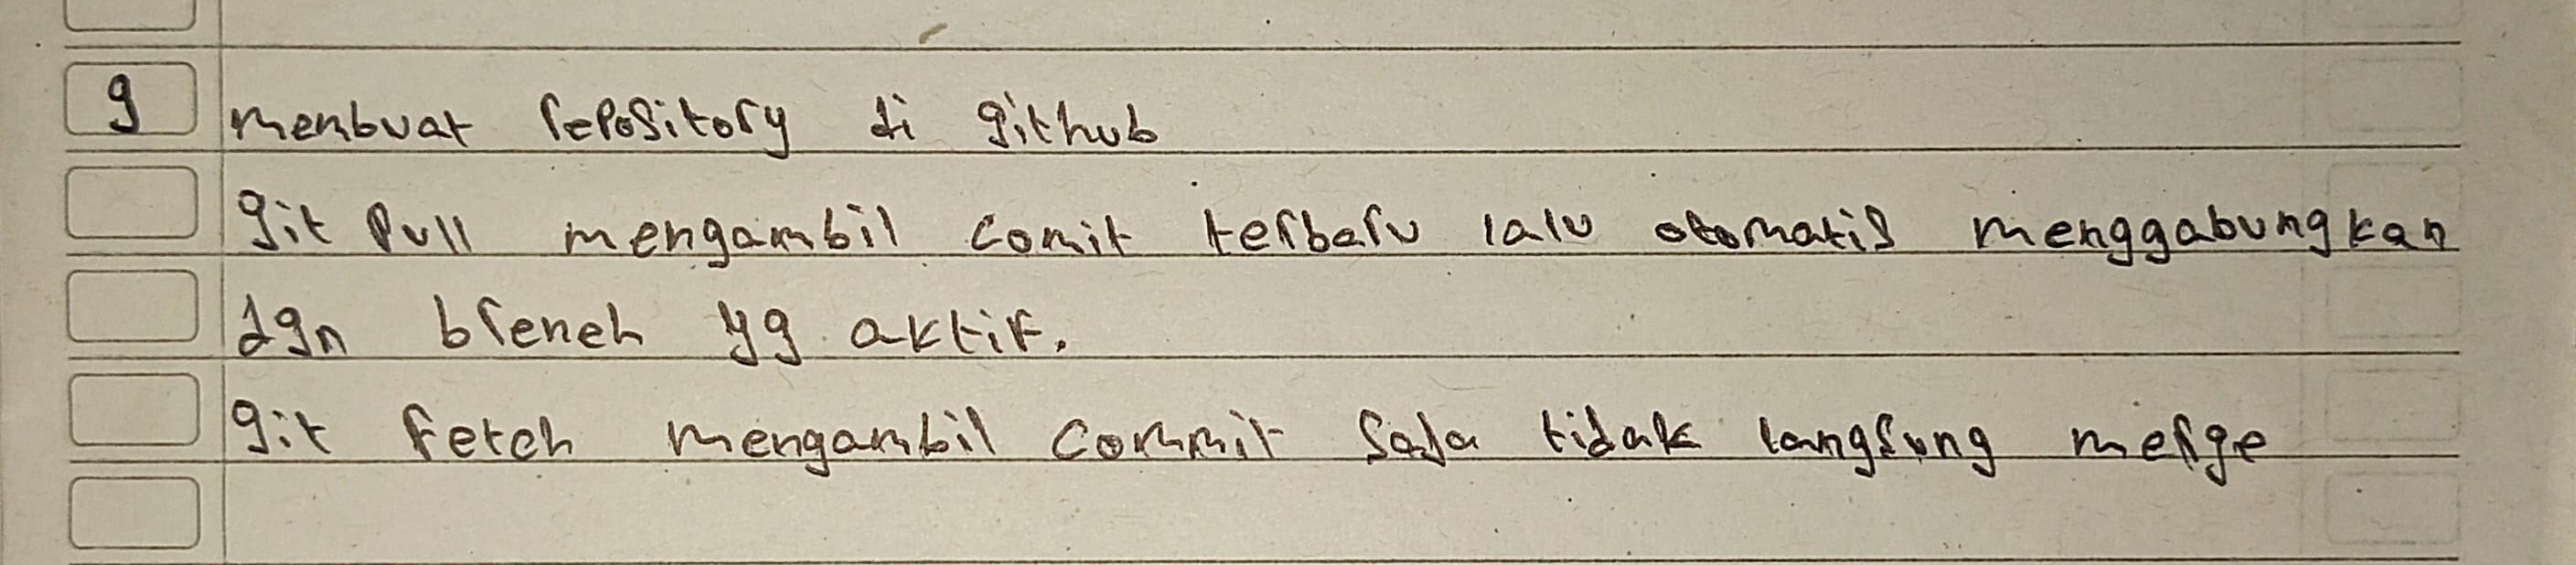 9 membuat repository di github
git pull mengambil comit terbaru lalu otomatis menggabungkan
dgn breneh yg aktif.
git fetch mengambil commit saja tidak langsung merge